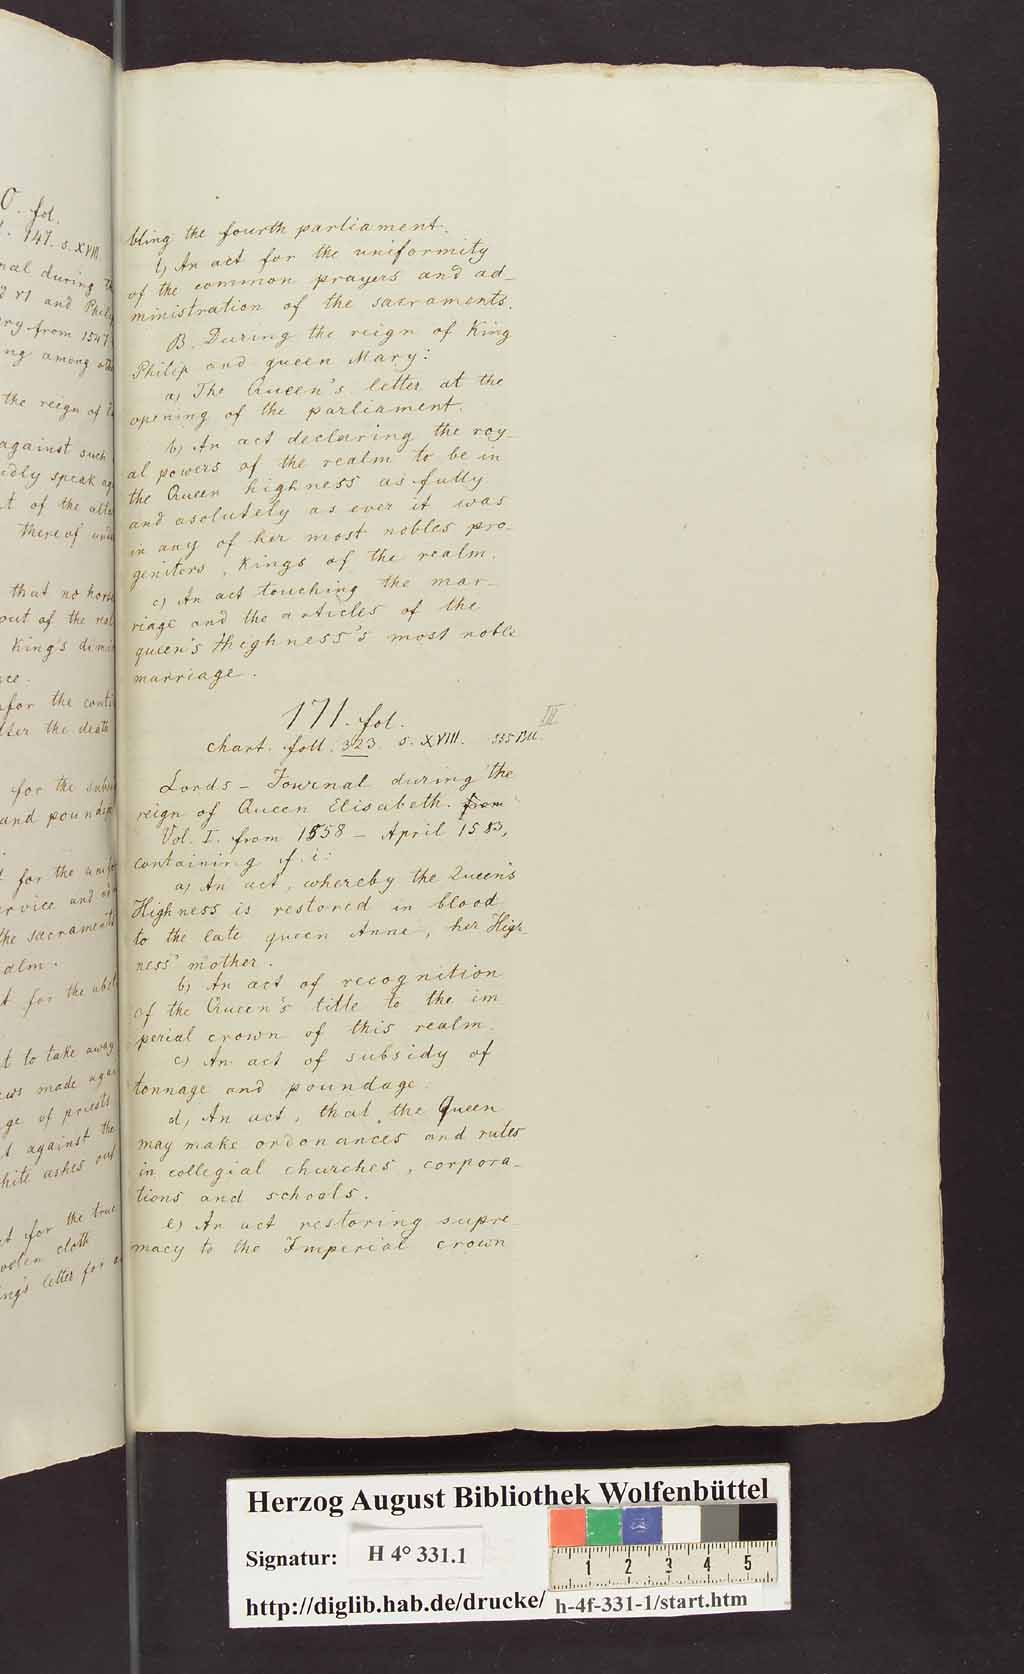 O. fol.
147. s. XVIII.
nal during
and Phili
from 1547
ng among
the reign of
against such
edly speak
t of the
thereof
that no hors
out of the
King's
for the
the death
for the
and
for the
ervice and
the sacrament
alm.
t for the
t to take away
made
ge of priests
t against the
ashes out
t for the true
cloth
letter for
bling the fourth parliament.
f) An act for the uniformity
of the common prayers and ad-
ministration of the sacraments.
B. During the reign of King
Philip and queen Mary:
a) The Queen's letter at the
opening of the parliament.
b) An act declaring the roy-
al powers of the realm to be in
the Queen highness as fully
and asolutely as ever it was
in any of her most nobles pro-
genitors, Kings of the realm.
c) An act touching the mar-
riage and the articles of the
queen's Heighness's most noble
marriage.
171. fol.
III
chart. foll. 323. s. XVIII. 535 Bll.
Lords - Journal during the
reign of Queen Elisabeth. from
Vol. I. from 1558 - April 1583,
containing f. i:
a) An act, whereby the Queen's
Highness is restored in blood
to the late queen Anne, her High-
ness' mother.
b) An act of recognition
of the Queen's title to the im
perial crown of this realm.
c) An act of subsidy of
tonnage and poundage.
d) An act, that the Queen
may make ordonances and rules
in collegial churches, corpora-
tions and schools.
e) An act restoring supre-
macy to the Imperial crown
Herzog August Bibliothek Wolfenbüttel
Signatur: H 4° 331.1
1 2 3 4 5
http://diglib.hab.de/drucke/ h-4f-331-1/start.htm